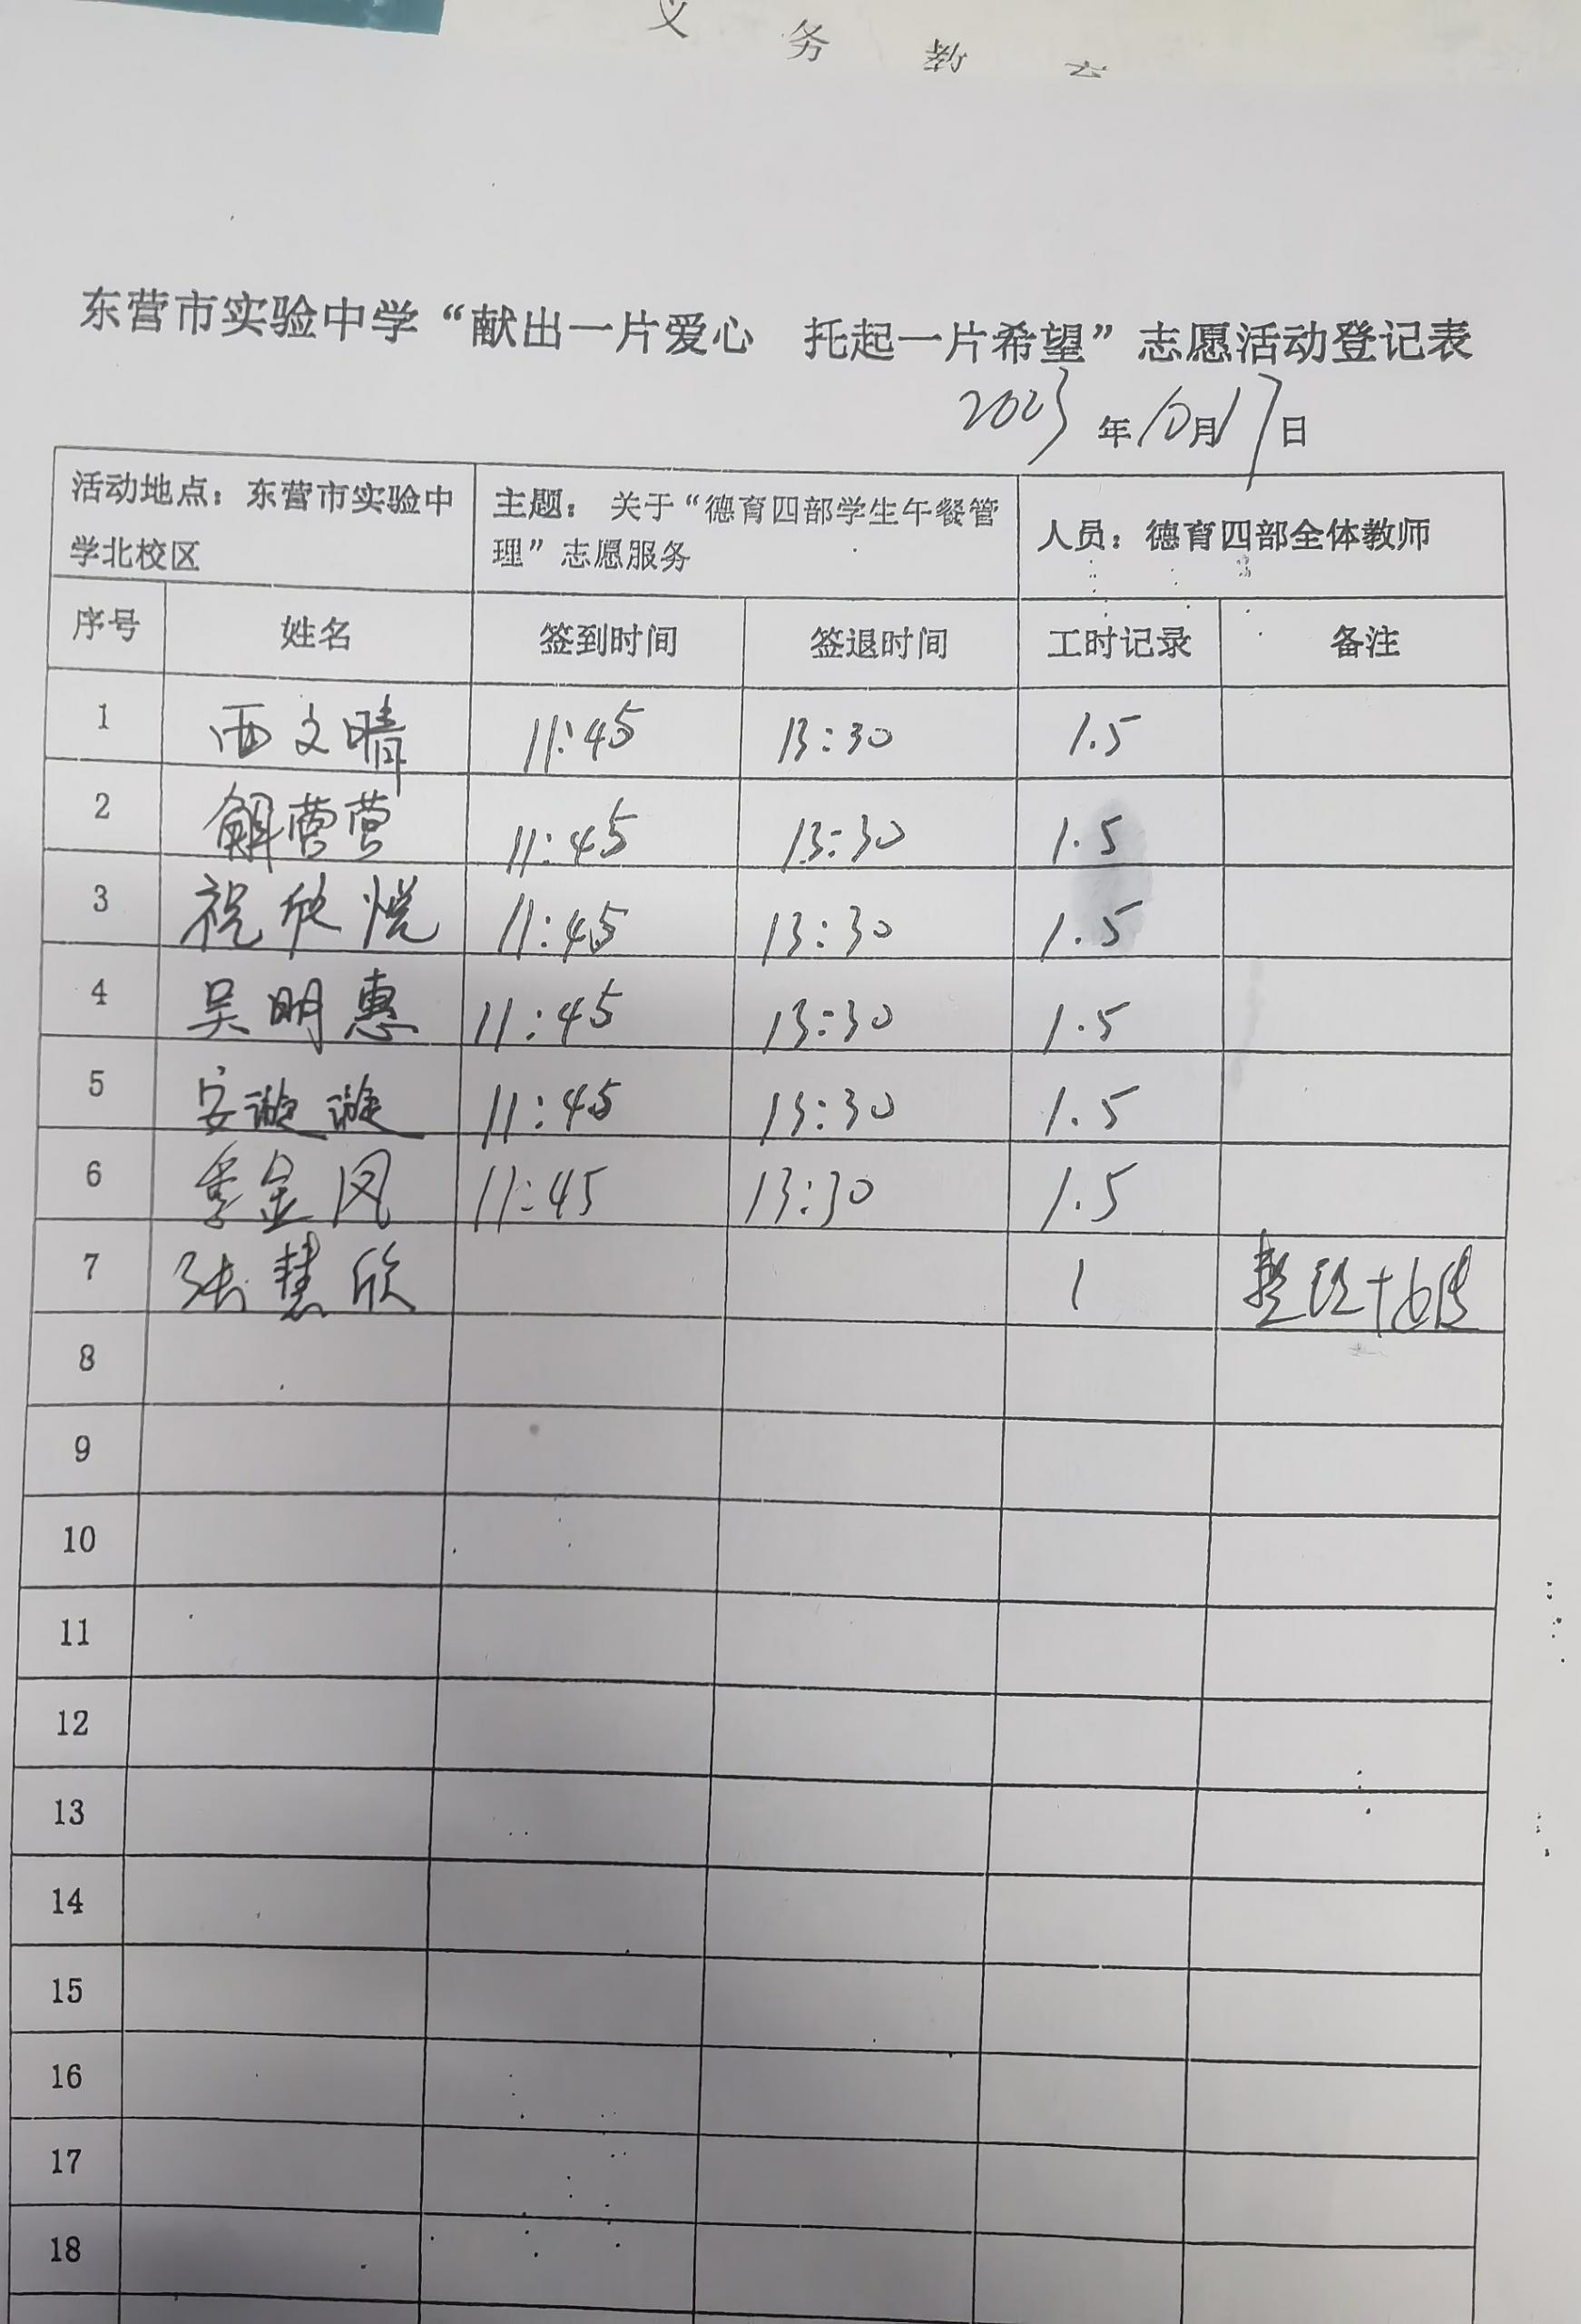 义 务 教
东营市实验中学“献出一片爱心 托起一片希望”志愿活动登记表
2023年10月17日
活动地点：东营市实验中学北校区 主题：关于“德育四部学生午餐管理”志愿服务 人员：德育四部全体教师
序号 姓名 签到时间 签退时间 工时记录 备注
1 西文晴 11:45 13:30 1.5
2 解莹莹 11:45 13:30 1.5
3 祝欣悦 11:45 13:30 1.5
4 吴明惠 11:45 13:30 1.5
5 安漩漩 11:45 13:30 1.5
6 季金凤 11:45 13:30 1.5
7 张慧欣 1 整理+
8
9
10
11
12
13
14
15
16
17
18